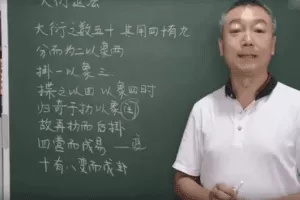 大衍筮法
大衍之数五十 其用四十有九
分而为二以象两
掛一以象三
揲之以四以象四时
归奇于扐以象闰
故再扐而后掛
四营而成易
十有八变而成卦